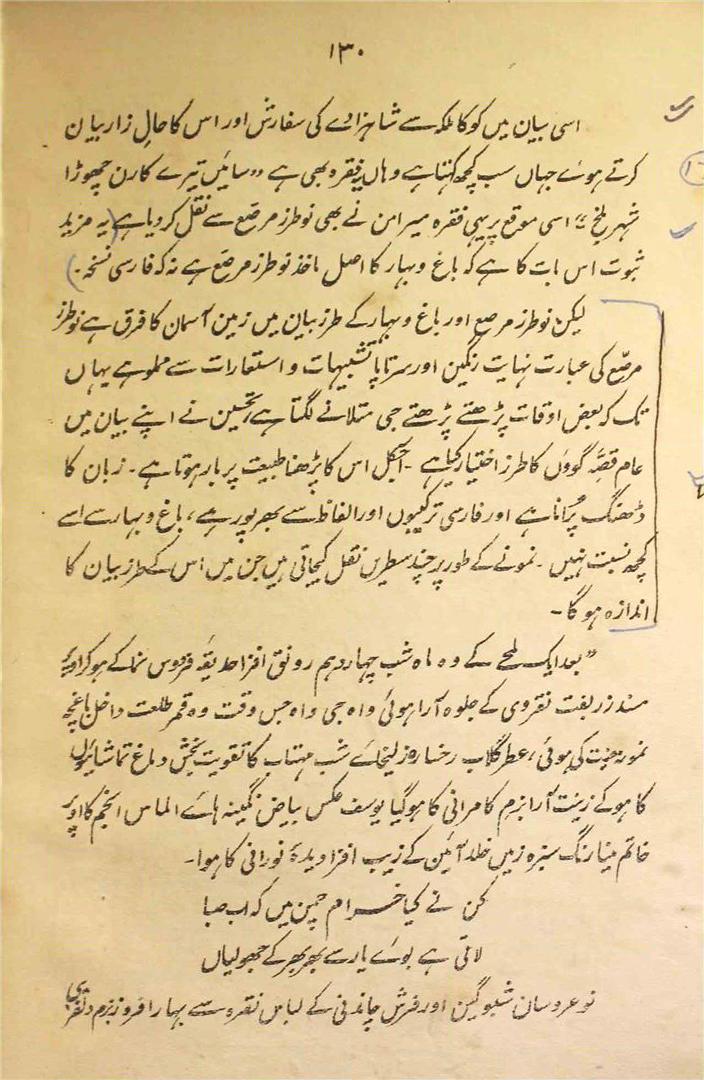 ۱۳۰
اسی بیان میں کوکا ملکہ سے شاہزادے کی سفارش اور اس کا حالِ زار بیان
کرتے ہوئے جہاں سب کچھ کہتا ہے وہاں یہ فقرہ بھی ہے "سائیں تیرے کارن چھوڑا
شہر بلخ" اسی موقع پر یہی فقرہ میر امن نے بھی نو طرز مرصّع سے نقل کر دیا ہے (یہ مزید
ثبوت اس بات کا ہے کہ باغ و بہار کا اصل ماخذ نو طرز مرصع ہے نہ کہ فارسی نسخہ۔)
لیکن نو طرز مرصع اور باغ و بہار کے طرز بیان میں زمین آسمان کا فرق ہے نو طرز
مرصّع کی عبارت نہایت رنگین اور سرتاپا تشبیہات و استعارات سے مملو ہے یہاں
تک کہ بعض اوقات پڑھتے پڑھتے جی متلانے لگتا ہے، تحسین نے اپنے بیان میں
عام قصّہ گوؤں کا طرز اختیار کیا ہے۔ آجکل اس کا پڑھنا طبیعت پر بار ہوتا ہے۔ زبان کا
ڈھنگ پُرانا ہے اور فارسی ترکیبوں اور الفاظ سے بھرپور ہے، باغ و بہار سے اسے
کچھ نسبت نہیں۔ نمونے کے طور پر چند سطریں نقل کیجاتی ہیں جن میں اس کے طرز بیان کا
اندازہ ہوگا۔
"بعد ایک لمحے کے وہ ماہ شب چہاردہم رونق افزا حدیقۂ فردوس نما کے ہوکر اوپر
مسند زربفت نقروی کے جلوہ آرا ہوئی واہ جی واہ جس وقت وہ قمر طلعت داخل باغچہ
نمونہ جنت کی ہوئی، عطر گلاب رخسار زلیخائے شب مہتاب کا تقویت بخش دماغ تماشائیوں
کا ہو کے زینت آرا بزم کامرانی کا ہوگیا یوسف عکس بیاض نگینہ ہائے الماس انجم کا اوپر
خاتم مینا رنگ سبزہ زمیں خلد آئین کے زیب افزا دیدۂ نورانی کا ہوا۔
کن نے کیا خرام چمن میں کہ اب صبا
لاتی ہے بوئے یار سے بھر بھر کے جھولیاں
نو عروسان شبو گین اور فرش چاندنی کے لباس نقرہ سے بہار افروز بزم دلفریبی